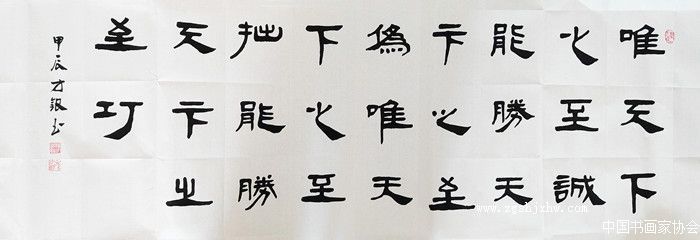 唯天下
之至誠
能勝天
下之至
偽唯天
下之至
拙能勝
天下之
至巧
甲辰才银书
www.zgshjxhw.com
中国书画家协会